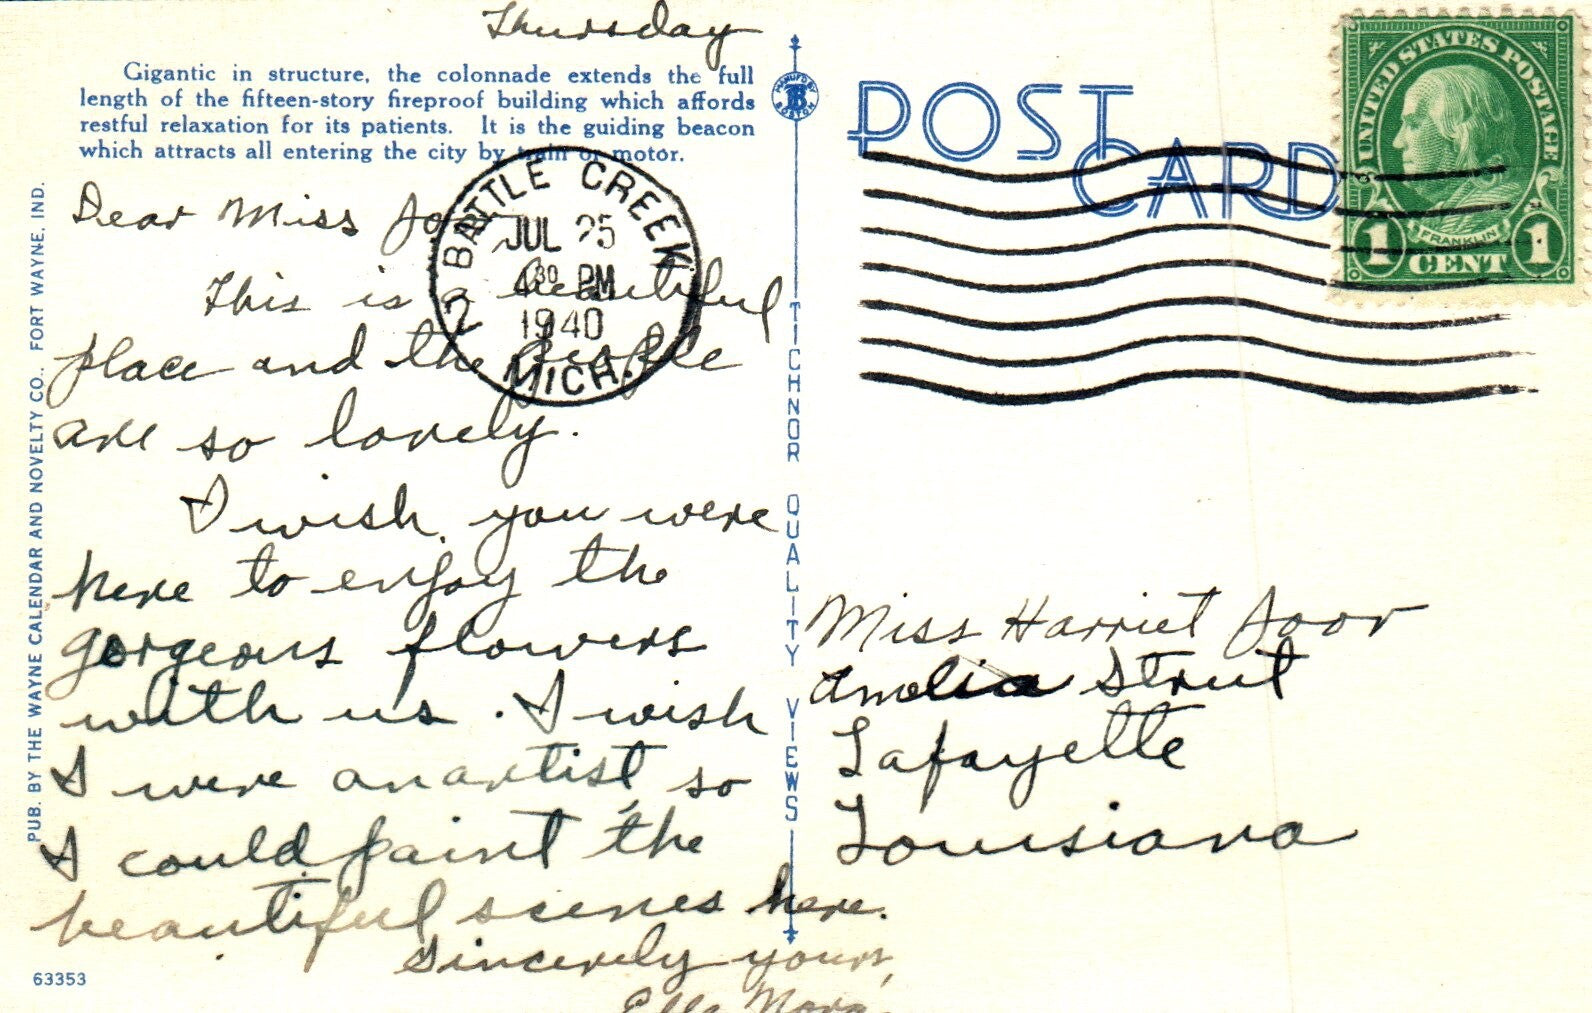 Thursday
Gigantic in structure, the colonnade extends the full
length of the fifteen-story fireproof building which affords
restful relaxation for its patients. It is the guiding beacon
which attracts all entering the city by train or motor.
Dear Miss Joor,
This is a beautiful
place and the people
are so lovely.
I wish you were
here to enjoy the
gorgeous flowers
with us. I wish
I were an artist, so
I could paint the
beautiful scenes here.
Sincerely yours,
Ella Nora
63353
PUB. BY THE WAYNE CALENDAR AND NOVELTY CO., FORT WAYNE, IND.
MANUF'D BY
BOSTON
TICHNOR QUALITY VIEWS
POST
CARD
BATTLE CREEK
JUL 25
4 30 PM
1940
MICH.
2
UNITED STATES POSTAGE
FRANKLIN
1 CENT 1
Miss Harriet Joor
Amelia Street
Lafayette
Louisiana